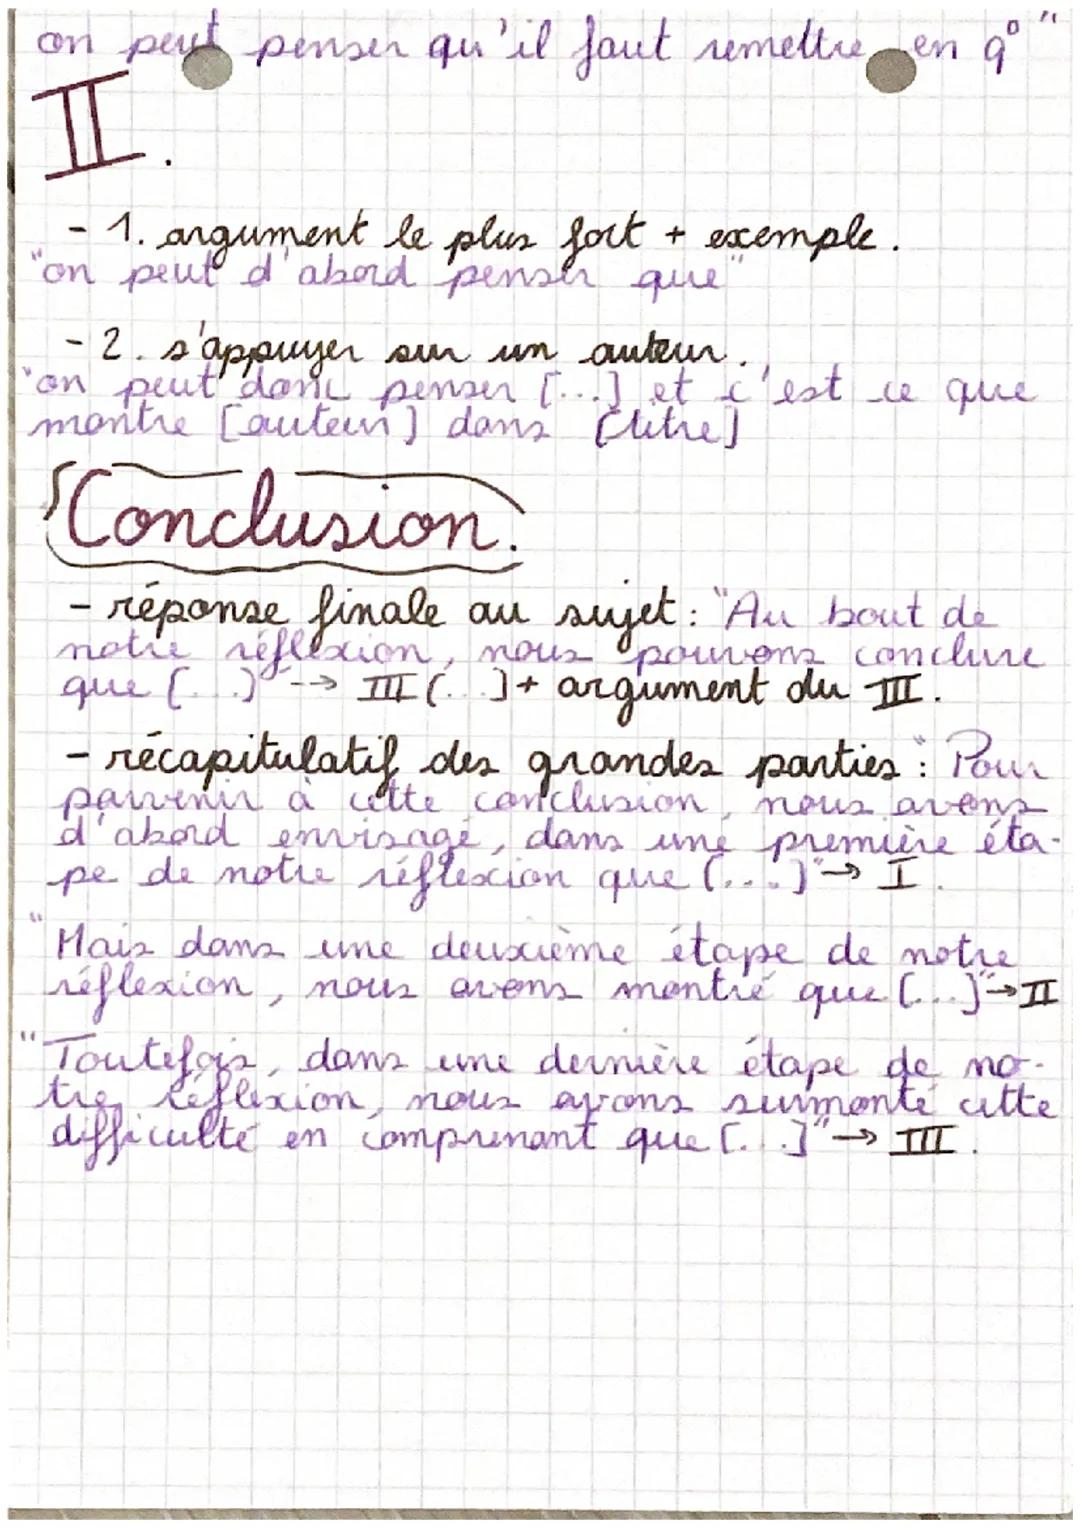 on peut penser qu'il faut remettre en q° "
II.
- 1. argument le plus fort + exemple.
"on peut d'abord penser que"
- 2. s'appuyer sur un auteur.
"on peut donc penser [...] et c'est ce que
montre [auteur] dans [titre]
Conclusion.
- réponse finale au sujet : "Au bout de
notre réflexion, nous pouvons conclure
que [...]" --> III [...] + argument du III.
- récapitulatif des grandes parties : "Pour
parvenir à cette conclusion, nous avons
d'abord envisagé, dans une première éta-
pe de notre réflexion que [...]" → I.
"Mais dans une deuxième étape de notre
réflexion, nous avons montré que [...]" → II
"Toutefois, dans une dernière étape de no-
tre réflexion, nous avons surmonté cette
difficulté en comprenant que [...]" → III.